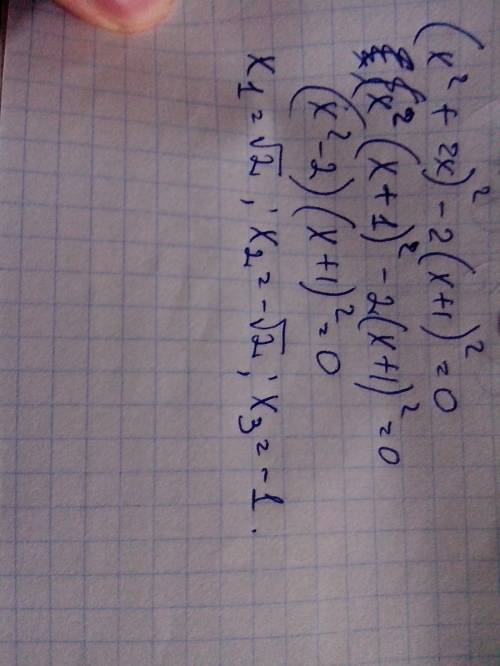 (x² + 2x)² - 2(x+1)² = 0
(x² (x+1)² - 2(x+1)² = 0
(x² - 2)(x+1)² = 0
x₁ = √2 ; x₂ = -√2 ; x₃ = -1.